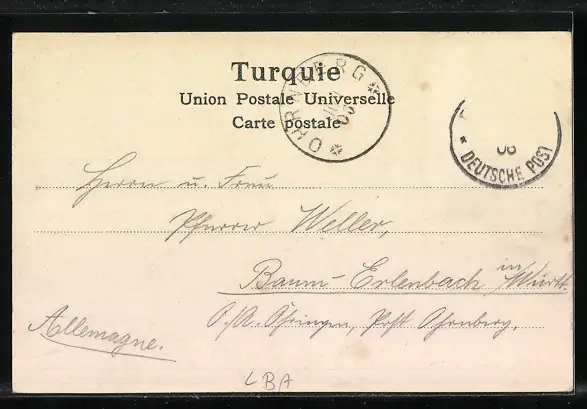 Turquie
Union Postale Universelle
Carte postale
OHRNBERG
06
* DEUTSCHE POST
Herrn u. Frau
Pfarrer Weller,
Baum-Erlenbach in Württ.
O/A. Öhringen, Post Ohrnberg.
Allemagne.
LBA